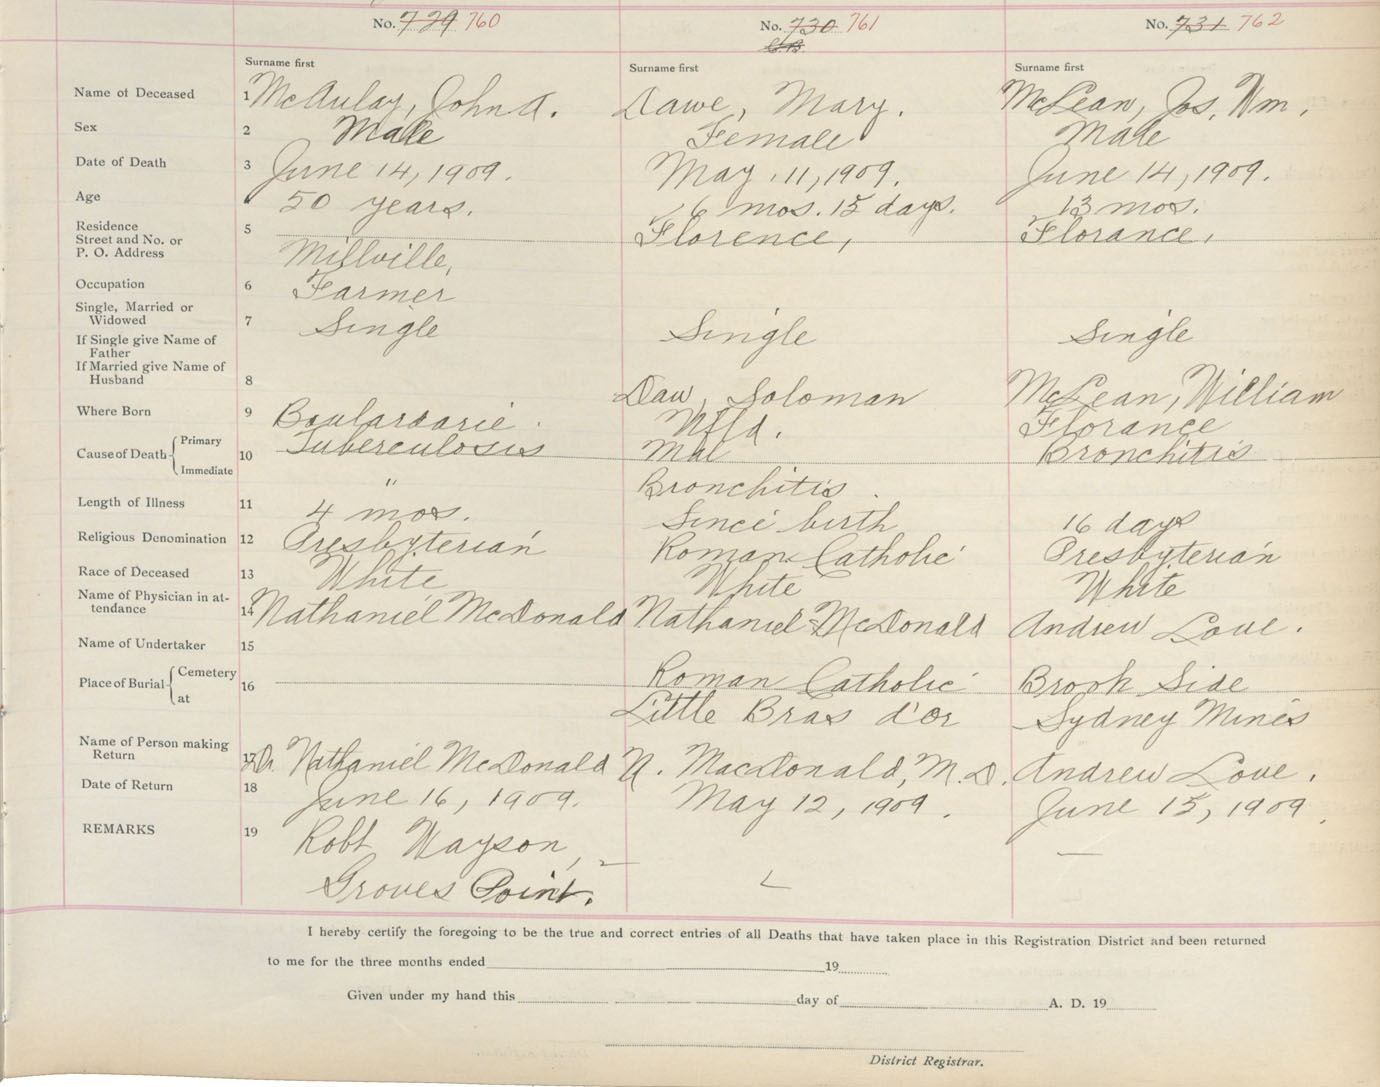 No. 729 760 No. 730 761 No. 731 762
Surname first Surname first Surname first
Name of Deceased 1 McAulay, John A. Dawe, Mary. McLean, Jos, Wm.
Sex 2 Male Female Male
Date of Death 3 June 14, 1909. May 11, 1909. June 14, 1909.
Age 50 years. 6 mos. 15 days. 13 mos.
Residence
Street and No. or 5 Florence, Florance,
P. O. Address Millville,
Occupation 6 Farmer
Single, Married or
Widowed 7 Single Single Single
If Single give Name of
Father
If Married give Name of
Husband 8 Daw, Soloman McLean, William
Where Born 9 Boulardarie. Nfld. Florance
Cause of Death Primary 10 Tuberculosis Mal Bronchitis
Immediate " Bronchitis.
Length of Illness 11 4 mos. Since birth 16 days
Religious Denomination 12 Presbyterian Roman Catholic Presbyterian
Race of Deceased 13 White White White
Name of Physician in at-
tendance 14 Nathaniel McDonald Nathaniel McDonald Andrew Love.
Name of Undertaker 15
Place of Burial Cemetery 16 Roman Catholic Brook Side
at Little Bras d'Or Sydney Mines
Name of Person making
Return 17 Dr. Nathaniel McDonald N. MacDonald, M.D. Andrew Love.
Date of Return 18 June 16, 1909. May 12, 1909. June 15, 1909.
REMARKS 19 Robt Wayson,
Groves Point.
I hereby certify the foregoing to be the true and correct entries of all Deaths that have taken place in this Registration District and been returned
to me for the three months ended 19
Given under my hand this day of A. D. 19
District Registrar.